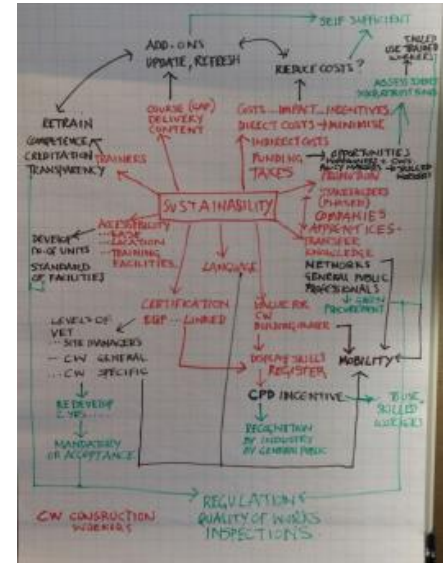 SELF SUFFICIENT
ADD-ONS
UPDATE, REFRESH
REDUCE COSTS?
USE TRAINED
WORKERS
RETRAIN
COMPETENCE
TRANSPARENCY
TRAINERS
COURSE (GAP)
DELIVERY
CONTENT
COSTS IMPACT INCENTIVES
DIRECT COSTS → MINIMISE
INDIRECT COSTS
FUNDING
TAXES
OPPORTUNITIES
PROMOTION
SUSTAINABILITY
STAKEHOLDERS
(PHASED)
COMPANIES
APPRENTICES
TRANSFER
KNOWLEDGE
NETWORKS
GENERAL PUBLIC
PROFESSIONALS
GREEN
PROCUREMENT
ACCESSIBILITY
LOCATION
TRAINING
FACILITIES
DEVELOP
NO. OF UNITS
STANDARD
OF FACILITIES
LANGUAGE
CERTIFICATION
EQF ... LINKED
VALUE FOR
CW
BUILDING OWNER
LEVELS OF
VET
SITE MANAGERS
CW GENERAL
CW SPECIFIC
DISPLAY SKILLS
REGISTER
MOBILITY
CPD INCENTIVE
SKILLED
WORKERS
REDEVELOP
2 YRS
MANDATORY
OR ACCEPTANCE
RECOGNITION
BY INDUSTRY
BY GENERAL PUBLIC
REGULATION
QUALITY OF WORKS
INSPECTIONS
CW CONSRUCTION
WORKERS